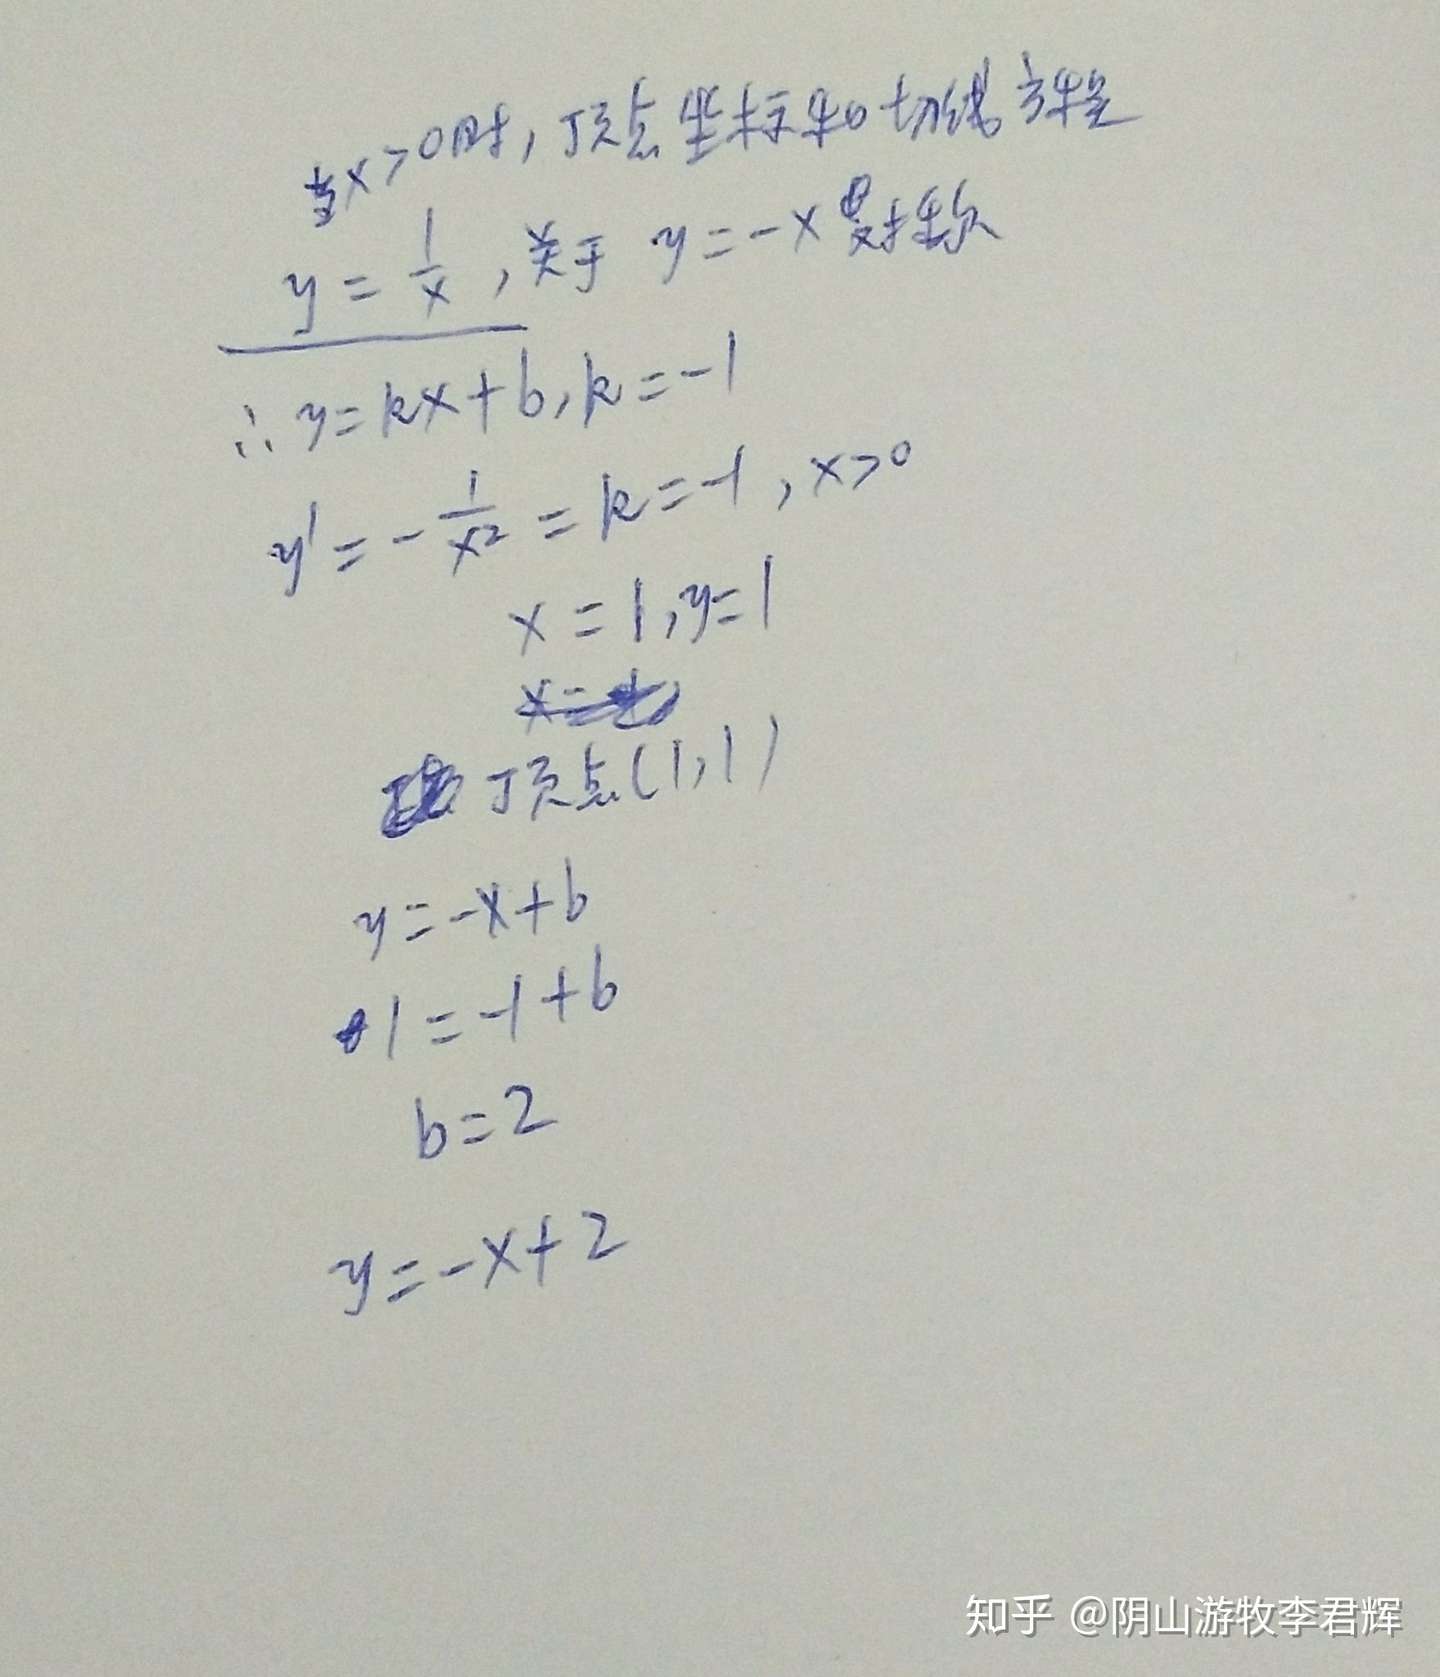 当x>0时,顶点坐标和切线方程
y=1/x,关于y=-x 对称
∴y=kx+b,k=-1
y'=-1/x²=k=-1,x>0
x=1,y=1
顶点(1,1)
y=-x+b
1=-1+b
b=2
y=-x+2
知乎 @阴山游牧李君辉